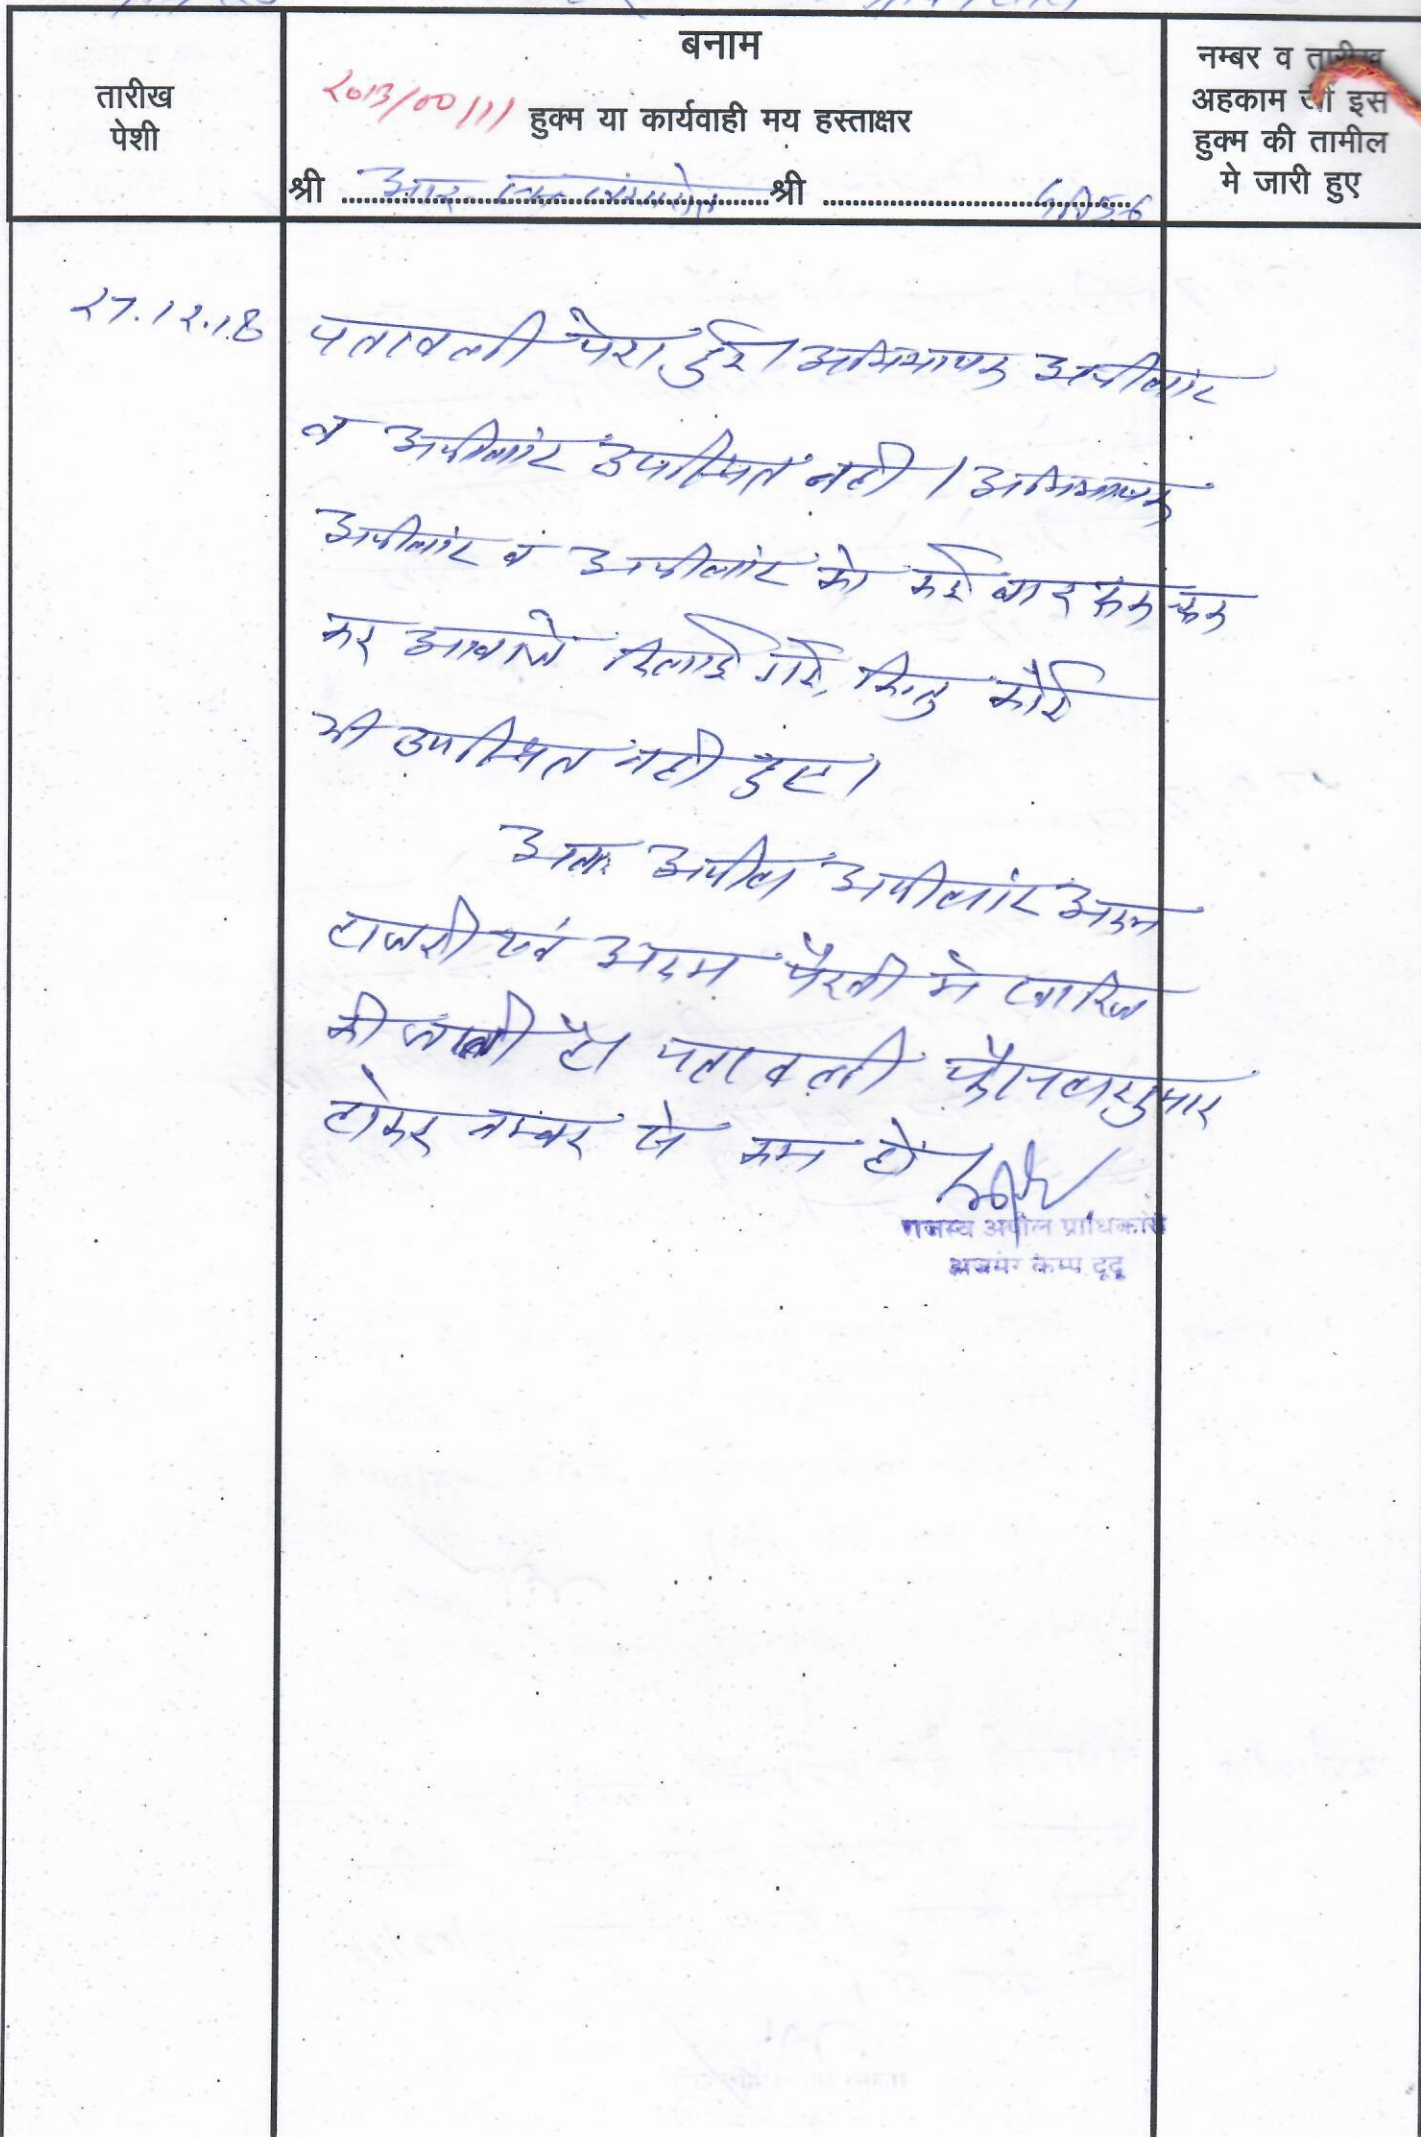 बनाम
तारीख
पेशी
2013/00111 हुक्म या कार्यवाही मय हस्ताक्षर
नम्बर व तारीख
अहकाम जो इस
हुक्म की तामील
मे जारी हुए
श्री श्री
27.12.18 पत्रावली पेश हुई। अभिभाषक अपीलांट
व अपीलांट उपस्थित नही । अभिभाषक
अपीलांट व अपीलांट को कई बार रूक रूक
कर आवाजें दिलाई गई, किन्तु कोई
भी उपस्थित नही हुए।
अतः अपील अपीलांट अदम
हाजरी एवं अदम पैरवी मे खारिज
की जाती है। पत्रावली फैसलाशुमार
होकर नम्बर से कम हो
राजस्व अपील प्राधिकारी
अजमेर केम्प दूदू